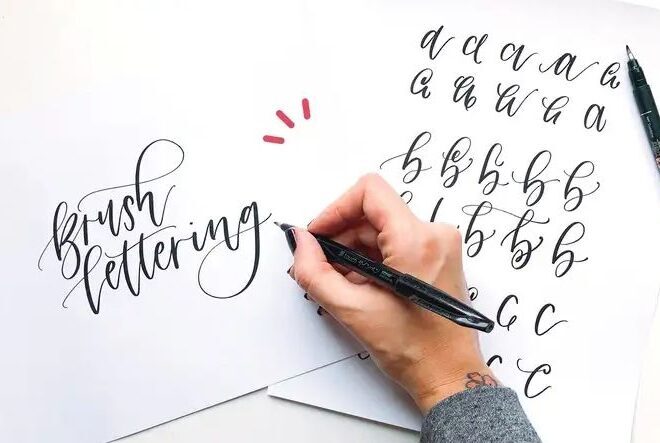 Brush
lettering
a a a a a
a a a a a
b b b b b
b b b b
c c
c